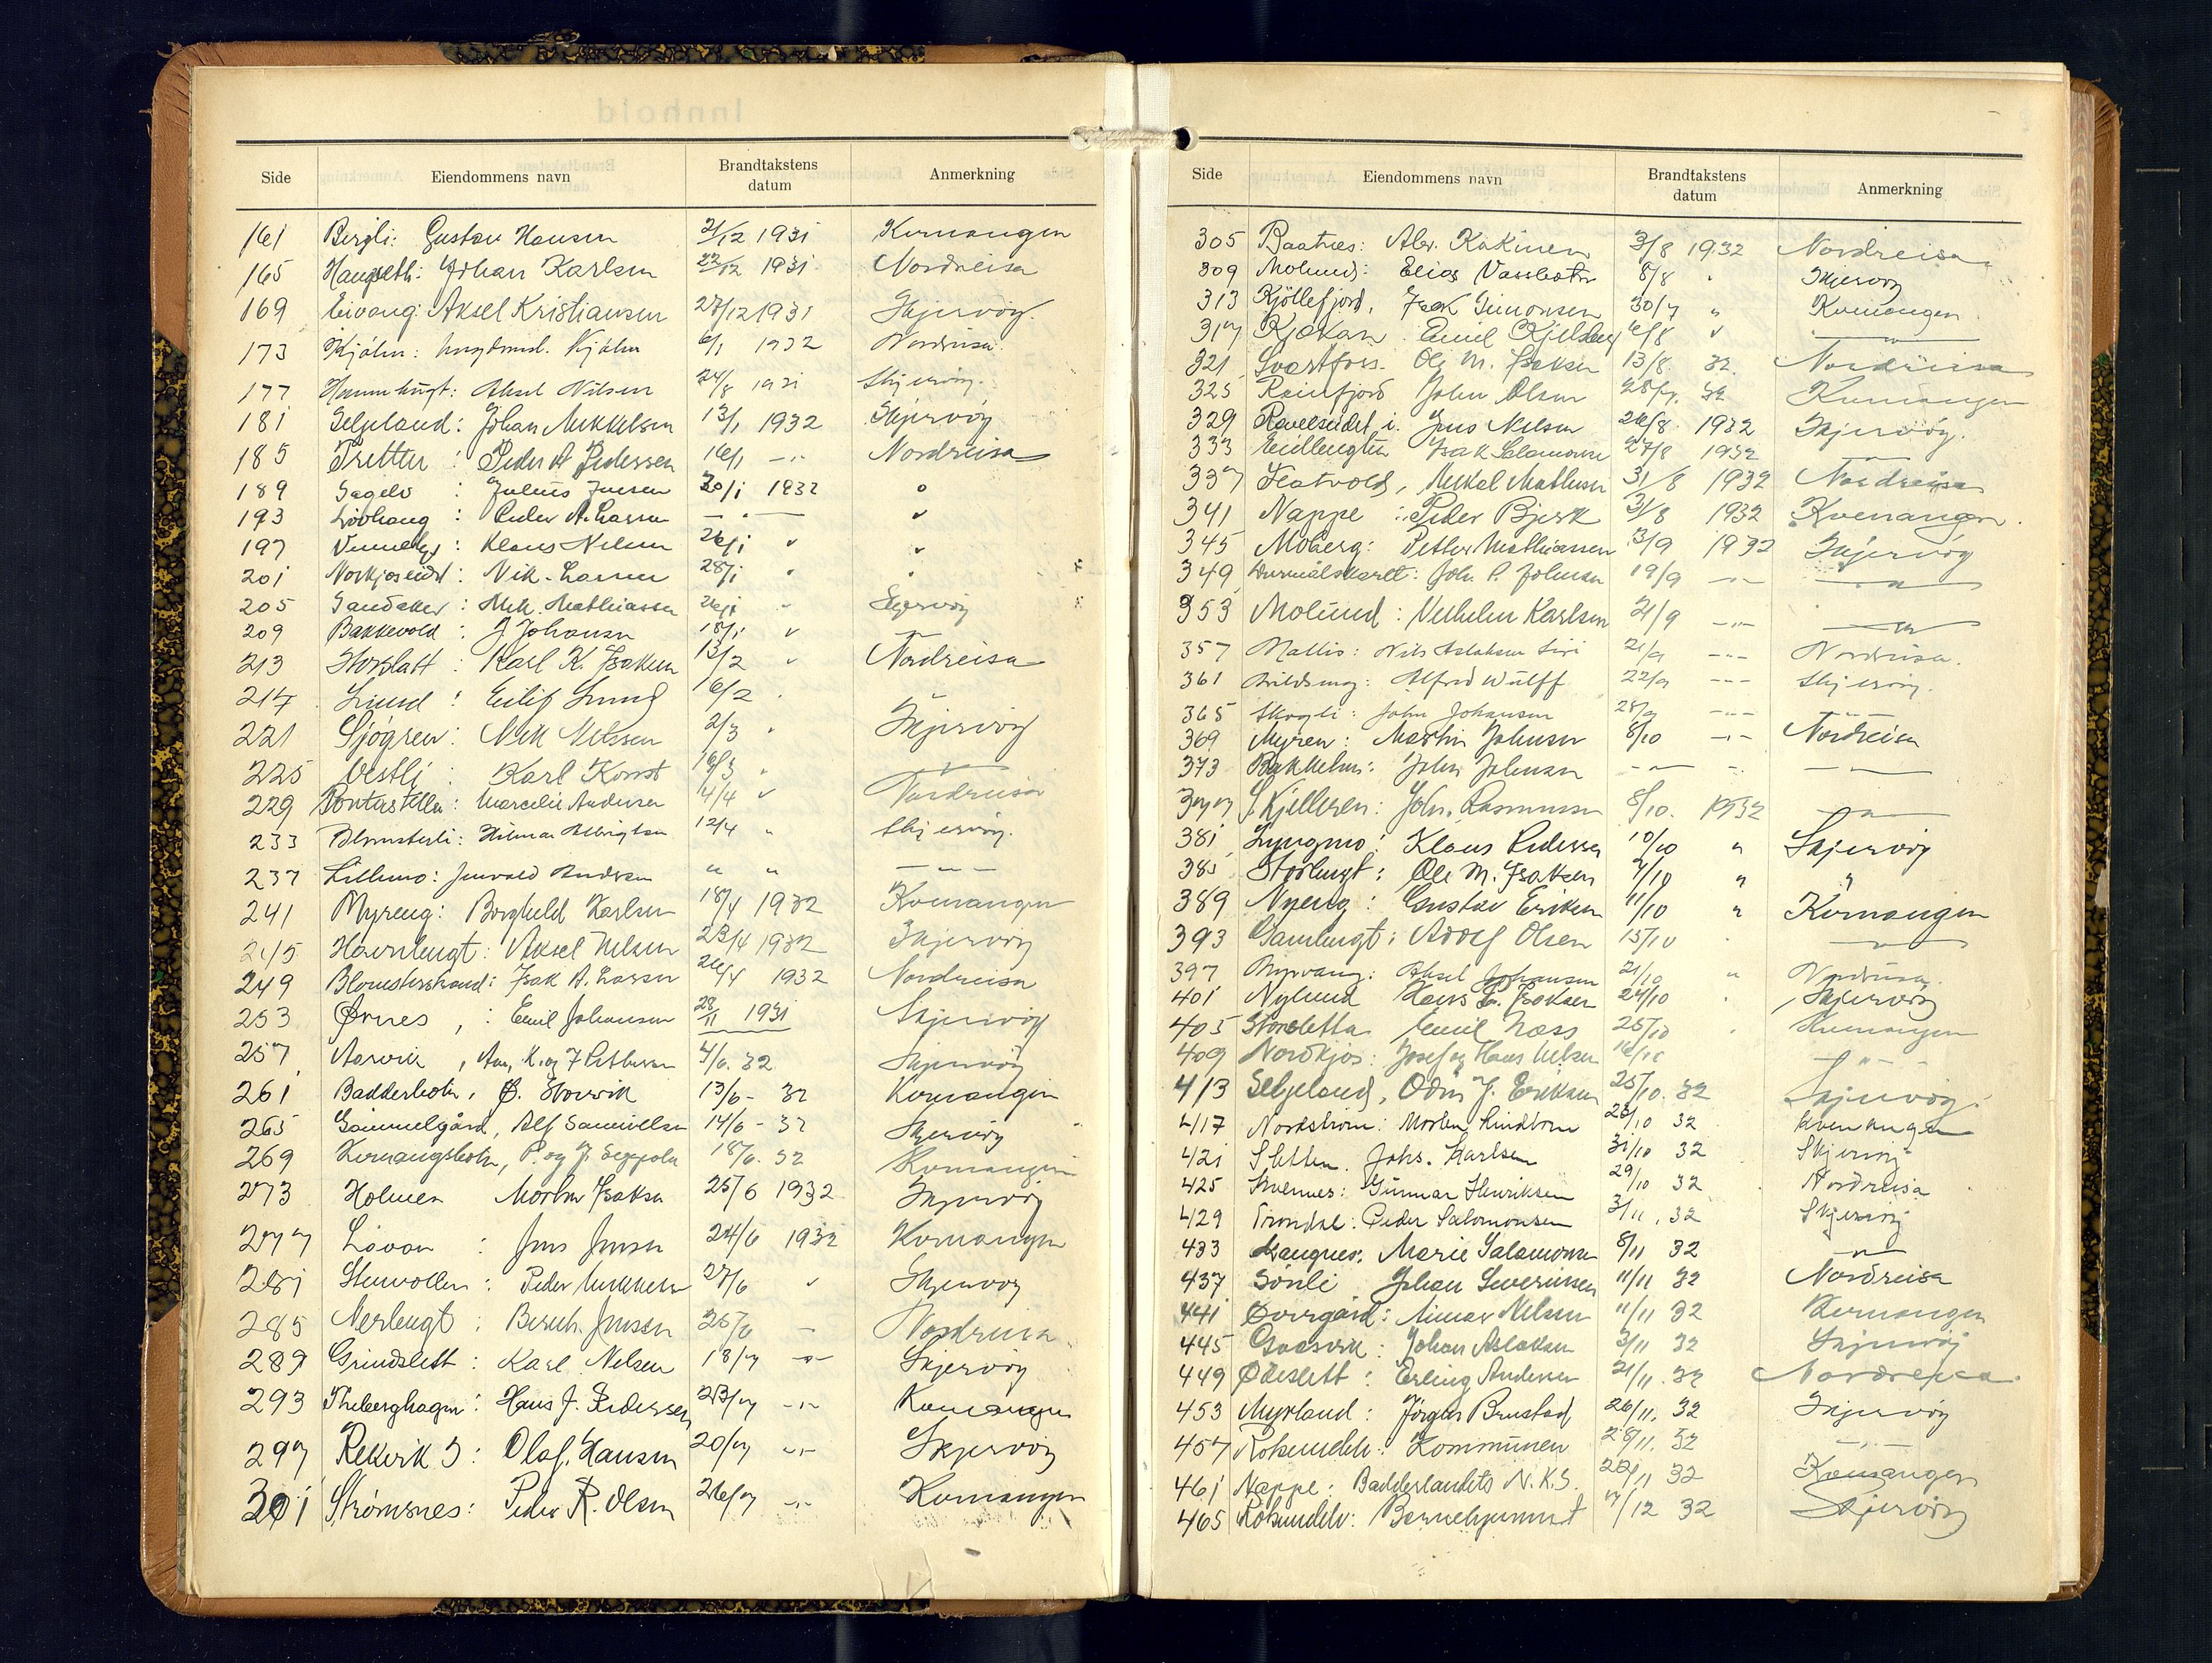 Side Eiendommens navn Brandtakstens datum Anmerkning
161 Bergli: Gustav Hansen 21/12 1931 Kvenangen
165 Haugseth: Johan Karlsen 22/12 1931 Nordreisa
169 Eivang: Aksel Kristiansen 28/12 1931 Skjervöy.
173 Kjölen: Kjölen 6/1 1932 Nordreisa
177 Aksel Nilsen 24/8 1931 Skjervöy.
181 Seljeland: Johan Mikkelsen 13/1 1932 Skjervöy
185 Tretten: Peder A Pedersen 16/1 -"- Nordreisa
189 Sagelv: Julius Jensen 20/1 1932 "
193 Lövhaug: Peder A. Larsen -"- "
197 Klaus Nilsen 26/1 " "
201 Norkjoseidet: Nik. Larsen 28/1 " "
205 Sandaker: Mik. Mathiassen 26/1 " Skjervöy
209 Bakkevold: J Johansen 18/1 " -"-
213 Storslatt: Karl K. Isaksen 13/2 " Nordreisa
217 Lund: Eilif Lund 16/2 .
221 Sjögren: Nik Nilssen 2/3 " Skjervöy
225 Vestli: Karl Korst 16/3 " -"-
229 Marcelie Andersen 4/4 " Nordreisa
233 Blomsterli: Hilmar Albrigtsen 12/4 " Skjervöy.
237 Lillemo: Andersen " " -"-
241 Myreng: Borghild Karlsen 18/4 1932 Kvenangen
245 Havnbugt: Aksel Nilsen 23/4 1932 Skjervöy
249 Blomsterstrand: Isak A. Larsen 26/4 1932 Nordreisa
253 Ørnes,: Emil Johansen 28/11 1931 Skjervöy
257 Aarvik, K. og F Pettersen 4/6. 32 Skjervöy
261 Badderbotn, Ø. Storvik 13/6- 32 Kvenangen
265 Gammelgård, Alf Samuelsen 14/6 - 32 Skjervöy
269 Kvenangsbotn, P. og J. Seppola 18/6. 32 Kvenangen
273 Holmen Morten Isaksen 25/6 1932 Skjervöy
277 Lövan: Jens Jensen 24/6 1932 Kvenangen
281 Stenvollen: Peder Mikkelsen 27/6 " Skjervöy
285 Nerbugt: Bernh. Jensen 25/6 - Nordreisa
289 Grindslett: Karl Nilsen 18/7 -"- Skjervöy
293 Hans J. Pedersen 23/7 -"- Kvenangen
297 Rekvik 3: Olaf Hansen 20/7 -"- Skjervöy
301 Strömsnes: Peder R. Olsen 26/7 -"- Kvenangen
Side Eiendommens navn Brandtakstens datum Anmerkning
305 Baatnes: Alex. Kakinen 3/8 1932 Nordreisa
309 Molund: Elias Vassbotn 8/8 " Skjervöy
313 Kjöllefjord, Isak Simonsen 30/7 " Kvenangen
317 Kjækan: Emil Kjelsberg 6/8 " -"-
321 Svartfoss. Ole M. Isaksen 13/8. 32. Nordreisa
325 Reinfjord John Olsen 28/7. 32 Kvenangen
329 Ravelseidet i. Jens Nilsen 26/8 1932 Skjervöy.
333 Isak Salamonsen 27/8 1932 -"-
337 Mikal Mathisen 31/8 1932 Nordreisa
341 Nappe: Peder Bjerk 31/8 1932 Kvenangen.
345 Moberg: Petter Mathiassen 3/9 1932 Skjervöy
349 Joh. P. Johnsen 19/9 -"- -"-
353 Molund: Vilhelm Karlsen 21/9 -"- -"-
357 Mallis: Nils Aslaksen Siri 21/9 -"- Nordreisa.
361 Alfred Wulff 22/9 -"- Skjervöy.
365 Skogli: John Johansen 28/9 -"-
369 Myren: Martin Johnsen 8/10 -"- Nordreisa
373 Bakkelun: John Johnsen -"- -"-
377 Skjelleren: Joh. Rasmussen 8/10. 1932 -"-
381 Lyngmo: Klaus Pedersen 10/10 " Skjervöy
385 Storbugt: Ole M. Isaksen 7/10 " "
389 Nyeng: Gustav Eriksen 11/10 " Kvenangen
393 Gambugt: Adolf Olsen 15/10 -"-
397 Myrvang: Aksel Johansen 21/10 " Nordreisa.
401 Nylund Hans L. Isaksen 24/10 . Skjervöy
405 Storsletta Emil Næss 25/10 . Kvenangen
409 Nordkjos: Josef og Hans Nilsen 16/10 -"-
413 Seljeland, Odin J. Eriksen 25/10. 32 Skjervöy.
417 Nordström: Morten Lindbom 28/10 32 Kvenangen
421 Sletten. Johs. Karlsen 31/10 32 Skjervöy
425 Gunnar Henriksen 29/10 32 Nordreisa
429 Trondal: Peder Salomonsen 3/11. 32 Skjervöy
433 Marie Salamonsen 8/11 32 -"-
437 Sönli Johan Severinsen 11/11 32 Nordreisa
441 Øvergård: Nilsen 11/11 32 Kvenangen
445 Gaasvik: Johan Aslaksen 3/11 32 Skjervöy
449 Ödeslett: Erling Andersen 21/11. 32 Nordreisa.
453 Myrland: Jörgen Brustad 26/11. 32 Skjervöy
457 Rotsundelv: Kommunen 28/11. 32 -"-
461 Nappe: Badderlandets N.K.S. 22/11 32 Kvenangen
465 Rotsundelv: Barnehjemmet 7/12 32 Skjervöy